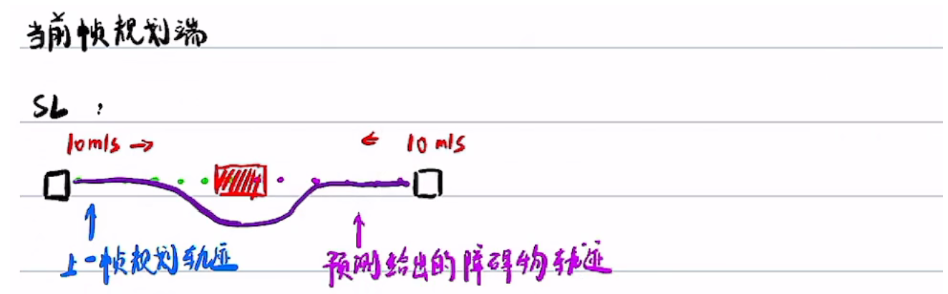 当前帧规划端
SL：
10m/s → ← 10m/s
上一帧规划轨迹 预测给出的障碍物轨迹